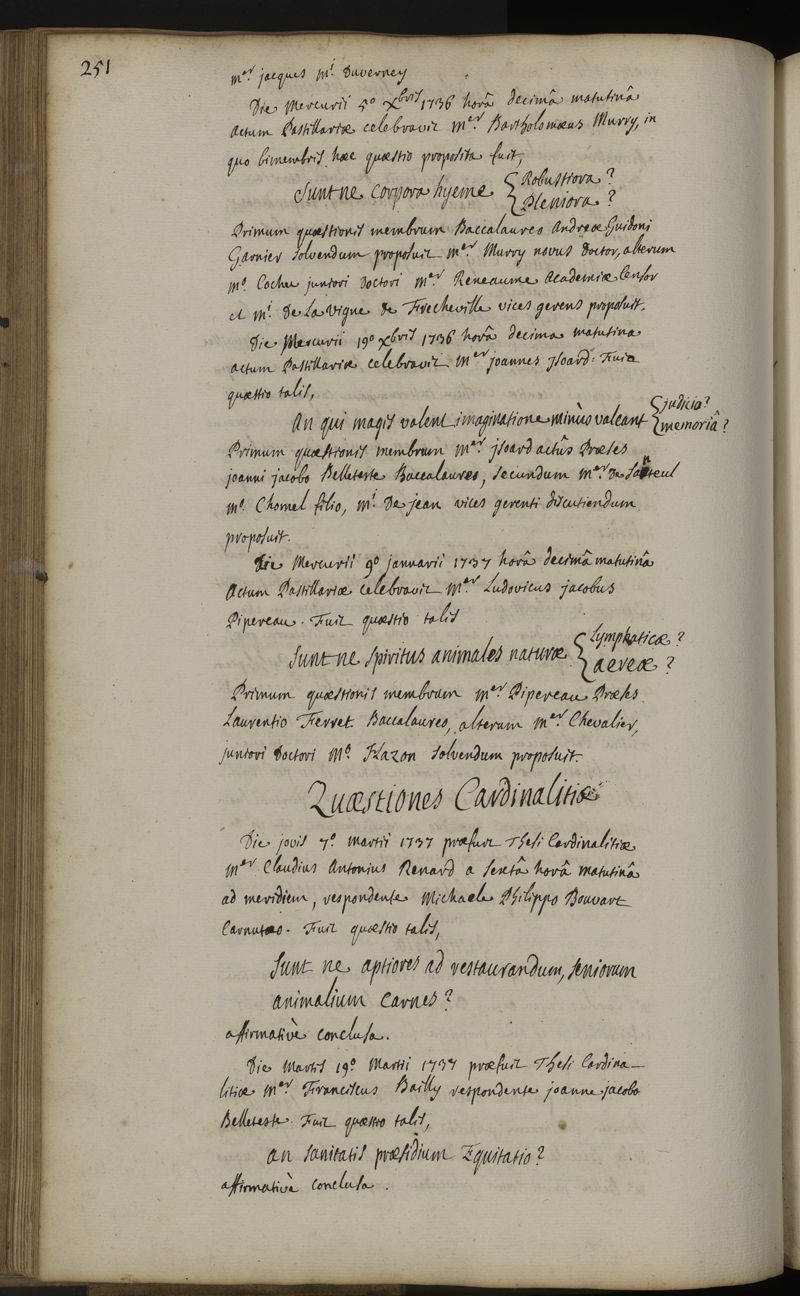 251
mer jacques mi Duverney
Die Mercurii 5º Xbris 1736 horâ decimâ matutinâ
Actum Pastillariæ celebravit Mer Bartholomæus Murry, in
quo bimembris hæc quæstio proposita fuit,
Sunt ne corpora hyeme { Robustiora ?
Pleniora ?
Primum quæstionis membrum Baccalaureo Andreæ Guidoni
Garnier solvendum proposuit Mer Murry novus Doctor, alterum
mo Cochu juniori Doctori Mer Reneaume Academiæ Censor
et mi De La vigne de Frecheville vices gerens proposuit.
Die Mercurii 19º Xbris 1736 horâ decima matutina
actum Pastillariæ celebravit Mer joannes jsoard. Fuit
quæstio talis,
An qui magis valent imaginatione minùs valeant { judicio ?
memoriâ ?
Primum quæstionis membrum Mer jsoard actûs Præses
joanni jacobo Belleteste Baccalaureo, secundum mer De Santeul
mo Chomel filio, mi De jean vices gerenti discutiendum
proposuit.
Die Mercurii 9º januarii 1737 horâ decimâ matutinâ
Actum Pastillariæ celebravit Mer Ludovicus jacobus
Pipereau. Fuit quæstio talis
Sunt ne spiritus animales naturæ { Lymphaticæ ?
aereæ ?
Primum quæstionis membrum Mer Pipereau Præses
Laurentio Ferret Baccalaureo, alterum Mer Chevalier,
juniori Doctori Mo Hazon solvendum proposuit.
Quæstiones Cardinalitiæ
Die jovis 7º Martii 1737 præfuit Thesi Cardinalitiæ
Mer Claudius Antonius Renard a sextâ horâ matutinâ
ad meridiem, respondente Michaele Philippo Bouvart
Carnutæo. Fuit quæstio talis,
Sunt ne aptiores ad restaurandum, seniorum
animalium carnes ?
affirmativè conclusa.
Die Martis 19º Martii 1737 præfuit Thesi Cardina-
litiæ Mer Franciscus Bailly respondente joanne jacobo
Belleteste. Fuit quæstio talis,
an sanitatis præsidium Equitatio ?
affirmativè conclusa.